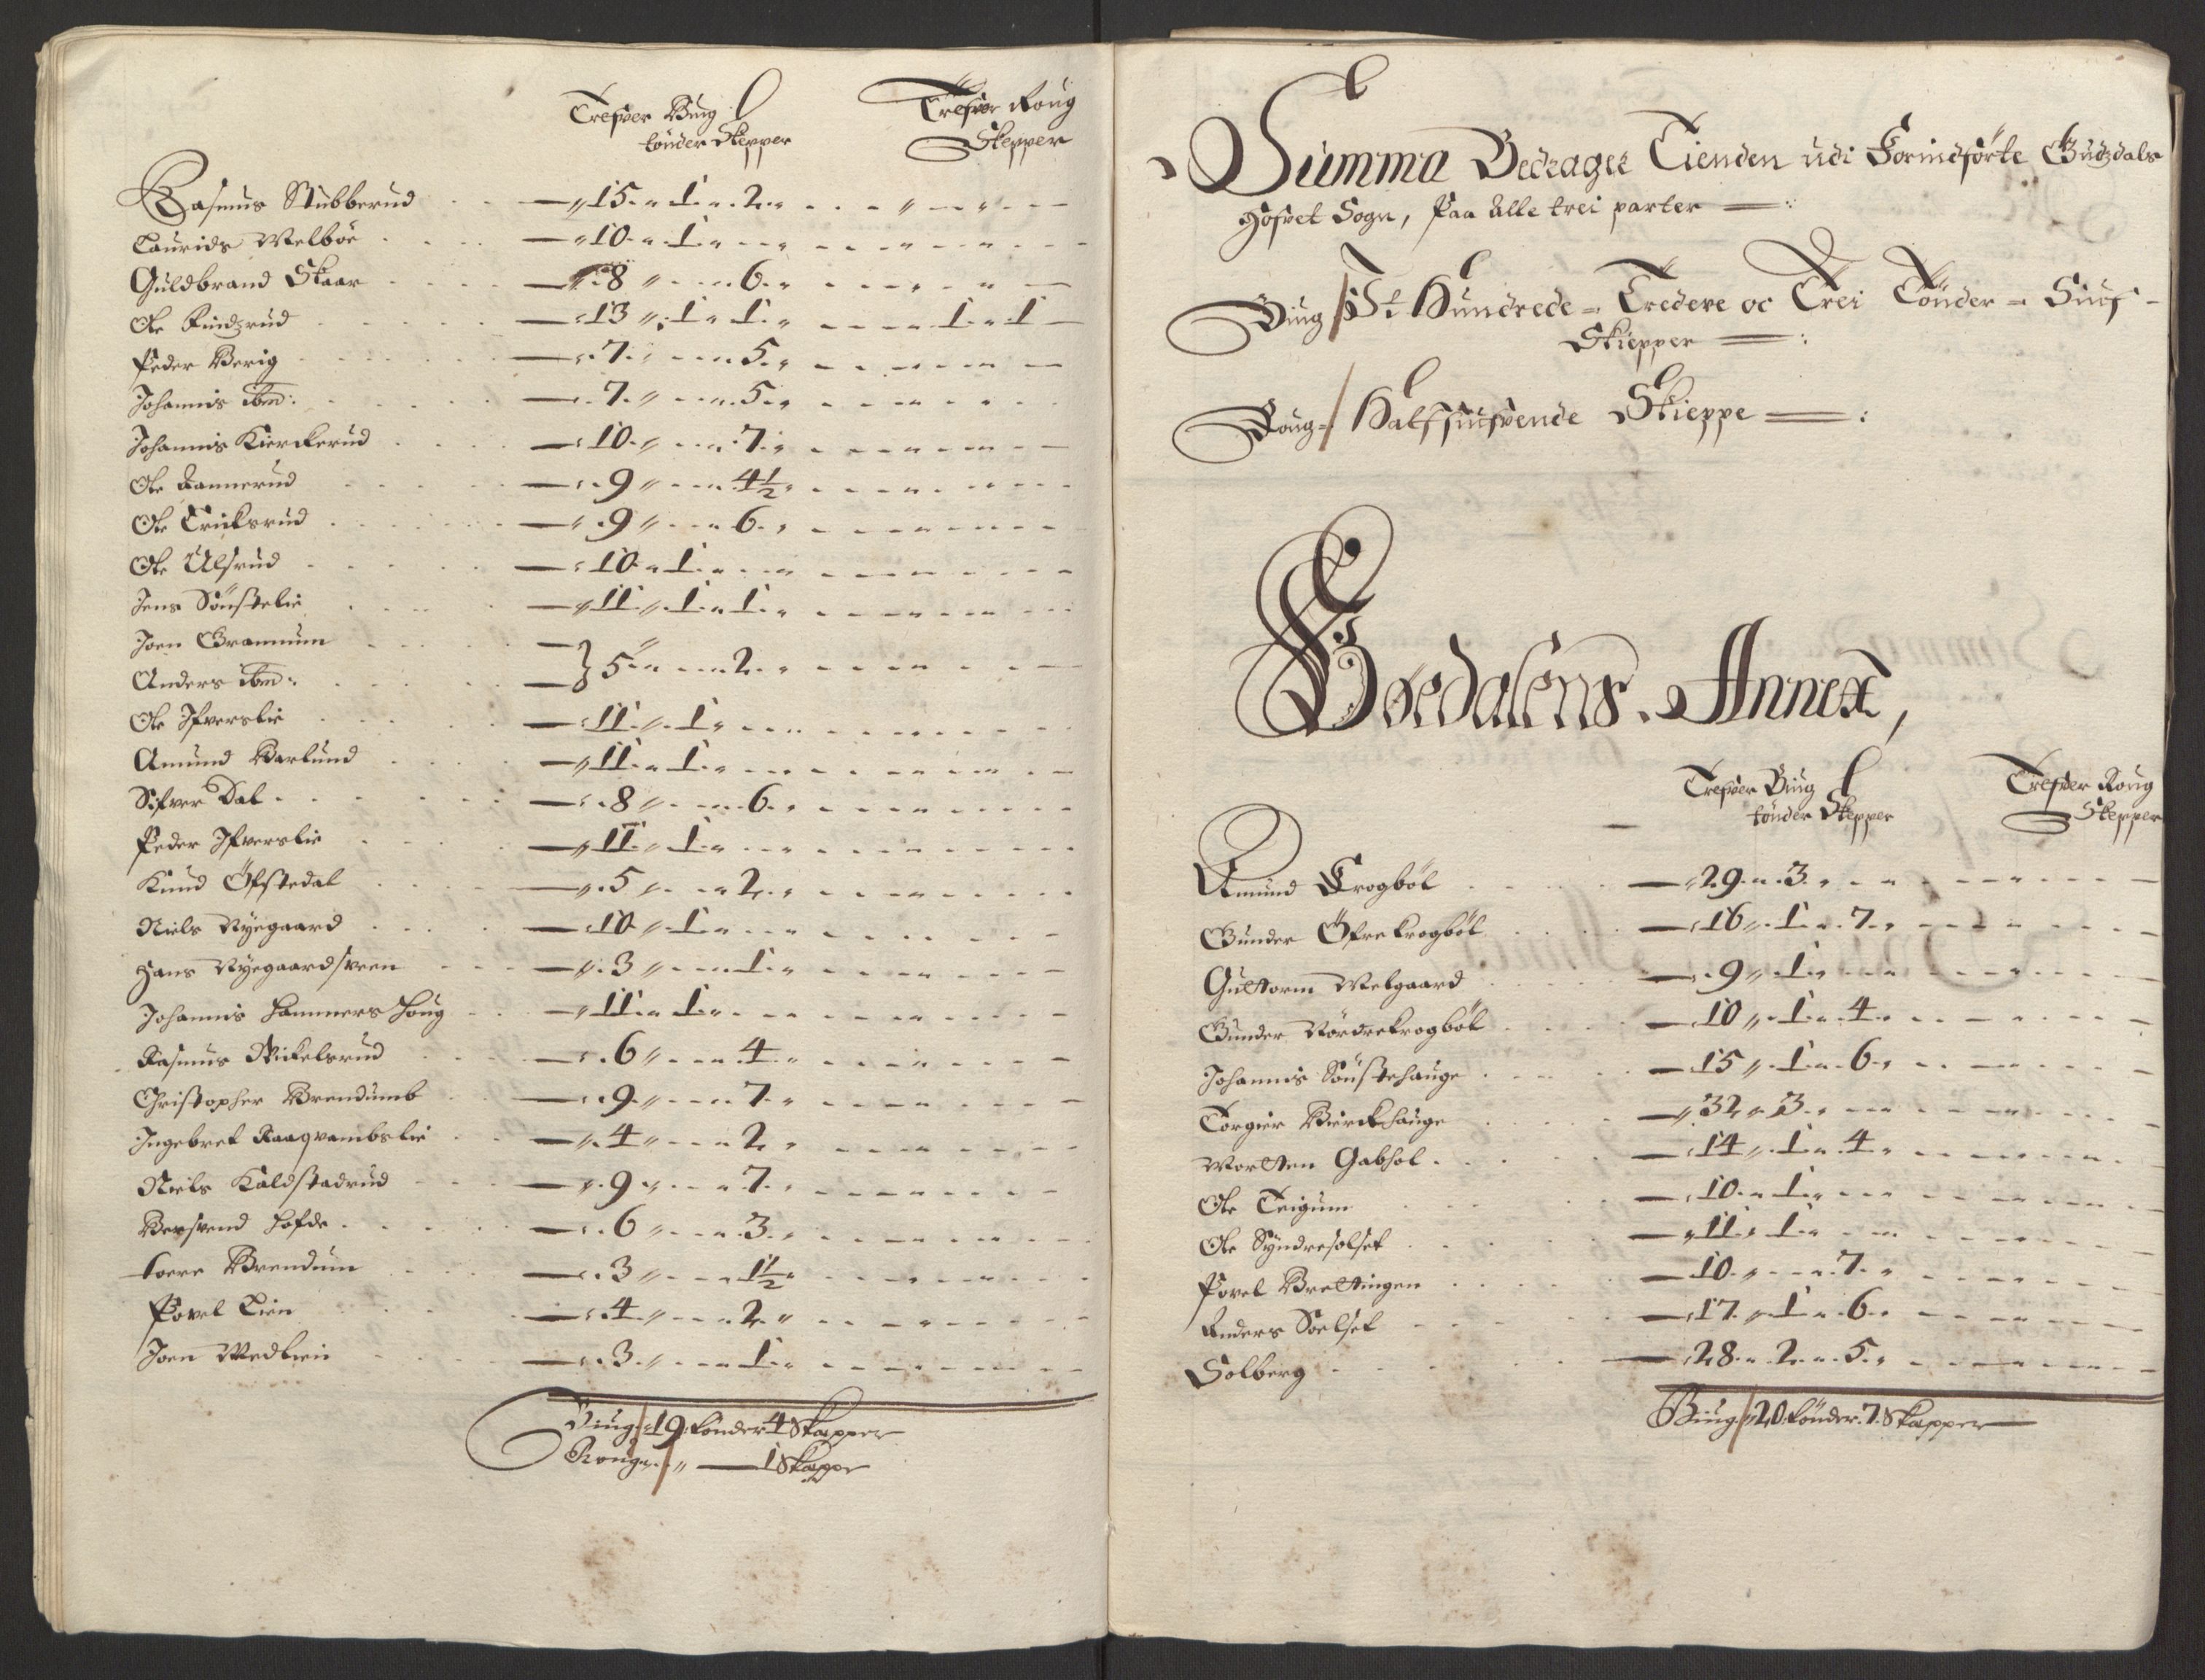 Trefver Biug Trefver Roug
tönder Skepper Skepper
Rasmus Stubberud 15 1 2
Laurids Melböe 10 1
Guldbrand Skaar 8 6
Ole Rindzrud 13 1 1 1 1
Peder Berig 7 5
Johannis ibm: 7 5
Johannis Kierckerud 10 7
Ole Rannerud 9 4½
Ole Ericksrud 9 6
Ole Ulsrud 10 1
Jens Sönstelie 11 1 1
Joen Grammum
Anders ibm: } 5 2
Ole Ifverslie 11 1
Amund Barlund 11 1
Sifver Dal 8 6
Peder Ifverslie 11 1
Knud Öfstedal 5 2
Niels Nyegaard 10 1
Hans Nyegaardsveen 3 1
Johannis Hammers Houg 11 1
Rasmus Mickelsrud 6 4
Christopher Brendumb 9 7
Ingebret Raaqvambslie 4 2
Niels Kaldstadrud 9 7
Bersvend Hofde 6 3
Tore Brendum 3 1½
Povel Lien 4 2
Joen Medlien 3 1
Biug 19 tönder 4 Skepper
Roug 1 Skeppe
Summa Bedrager Tienden udi Forindförte Gudzdals
Hofvet Sogn, Paa Alle trei parter
Biug / Et Hundrede Tredeve oc Trei Tönder Siuf
Skiepper
Roug / Halfsiufvende Skieppe
Boedalens Annex,
Trefver Biug Trefver Roug
tönder Skepper Skepper
Amund Krogböl 29 3
Gunder Öfrekrogböl 16 1 7
Guttorm Melgaard 9 1
Gunder Nördrekrogböl 10 1 4
Johannis Sönstehauge 15 1 6
Torgier Bierckhauge 32 3
Morten Gabhol 14 1 4
Ole Teigum 10 1
Ole Syndresolset 11 1
Povel Brettingen 10 7
Anders Soelset 17 1 6
Solberg 28 2 5
Biug / 20 tönder 7 Skepper